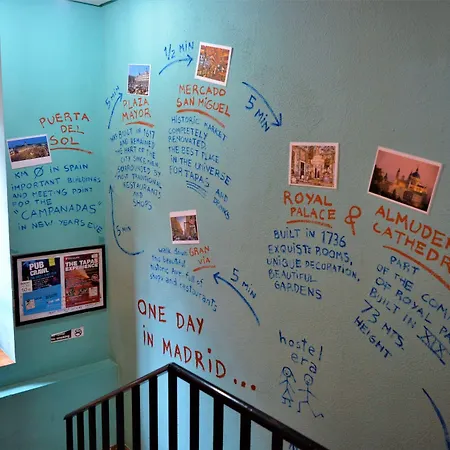 PUERTA
DEL
SOL
KM Ø IN SPAIN
IMPORTANT BUILDINGS
AND MEETING POINT
FOR THE
"CAMPANADAS"
IN NEW YEARS EVE
PUB
CRAWL
THE TAPAS
EXPERIENCE
5 MIN
PLAZA
MAYOR
BUILT IN 1617
AND REMAINED
THE CITY SINCE THEN
SURROUNDED BY
MANY TRADITIONAL
RESTAURANTS
AND SHOPS
5 MIN
1/2 MIN
MERCADO
SAN MIGUEL
HISTORIC MARKET
COMPLETELY
RENOVATED.
THE BEST PLACE
IN THE UNIVERSE
FOR TAPAS AND
DRINKS
5 MIN
GRAN
VÍA
WALK DOWN
THIS BEAUTIFUL
HISTORIC AV. FULL OF
SHOPS AND RESTAURANTS
5 MIN
ROYAL
PALACE &
BUILT IN 1736
EXQUISITE ROOMS,
UNIQUE DECORATION,
BEAUTIFUL
GARDENS
ALMUDEN
CATHEDR
PART OF
THE COM
OF ROYAL PA
BUILT IN XIX
73 MTS.
HEIGHT
ONE DAY
IN MADRID...
hostel
era